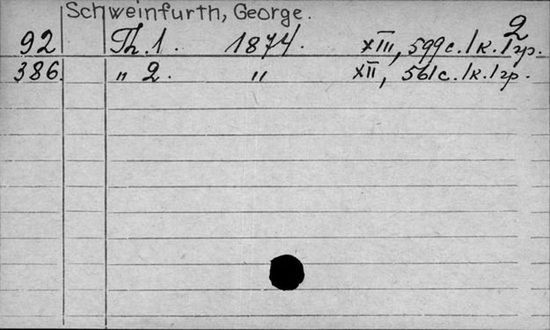 Schweinfurth, George.
2
92 Th. 1. 1874. XIII, 599 с. 1 к. 1 гр.
386. „ 2. „ XII, 561 с. 1 к. 1 гр.